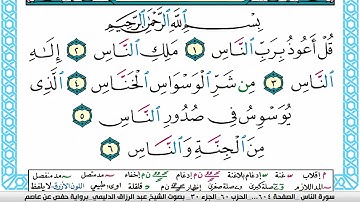 بِسْمِ اللَّهِ الرَّحْمَٰنِ الرَّحِيمِ
قُلْ أَعُوذُ بِرَبِّ النَّاسِ ١ مَلِكِ النَّاسِ ٢ إِلَٰهِ
النَّاسِ ٣ مِن شَرِّ الْوَسْوَاسِ الْخَنَّاسِ ٤ الَّذِي
يُوَسْوِسُ فِي صُدُورِ النَّاسِ ٥
مِنَ الْجِنَّةِ وَالنَّاسِ ٦
سورة الناس الصفحة ٦٠٤ .... الحزب ٦٠ الجزء ٣٠ بصوت الشيخ عبد الرزاق الدليمي برواية حفص عن عاصم